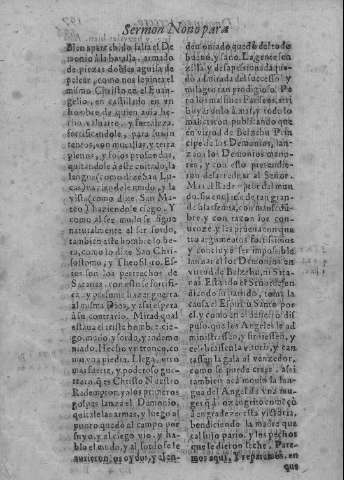 Sermon Nono para
Bien apercebido salia el De
monio à la batalla, armado
de piezas dobles aguisa de
pelear, como nos lo pinta el
mismo Christo en el Euan-
gelio, en castillado en vn
hombre de quien auia he-
cho valuarte, y fortaleza,
fortificandole, para su in-
tentos, con murallas, y terra
plenos, y fosos profundos,
quitandole à este cuitado, la
lengua, como dize San Lu-
cas, haziendole mudo, y la
vista, como dize San Ma-
teo, haziendole ciego. Y
como al ser mudo se sigue
naturalmente el ser sordo,
tambien este hombre lo be-
ra, como lo dize San Chri-
sostomo, y Theofilo. Es-
tos son los pertrechos de
Satanas con esto se fortifi-
ca, y presume hazer guerra
al mismo Dios, y assi espera
à su contrario. Mirad qual
estaua el triste hombre cie-
go, mudo, y sordo, y ende mo
niado. Hecho vn tronco, co-
mo vna piedra. Llega, otro
mas fuerte, y poderoso gue-
rrero, que es Christo Nuestro
Redemptor, y à los primeros
golpes lanza el Demonio,
quitale las armas, y luego al
punto quedò al campo por
suyo, y el ciego vio, y ha-
blo el mudo, y al sordo se le
abrieron los oydos, y el en-
demoniado quedò del todo
bueno, y sano. La gente sen
zilla, y desapassionada que-
dò admirada del sucesso, y
milagro tan prodigioso. Pe
ro los malinos
à mas, y todo lo
malician publicando que
en virtud de Belzebu Prin
cipe de los Demonios, lan-
zaua los Demonios meno-
res, y con esto pretendie-
ron desacreditar al Señor.
Mas el Redemptor del mun
do, su enojose de tan gran-
de blasfemia, con mansedũ-
bre, y con razon los con-
uoze, y les prueua con qua
tro argumentos fuertissimos
y concluye ser impossible
lanzar los Demonios en
virtud de Belzebu, ni Sata-
nas. Estando el Señor defen-
diendo su partido, toma la
causa el Espiritu Santo por
el, y como en el desierto dis-
puso, que los Angeles le ad
ministrassen, y siruiessen, y
celebrassen la victoria, y can-
tassen la gala al venzedor,
como se puede creer, assi
tambien acà mouio la len-
gua del Angel de vna mu-
ger, que à voz en grito comẽçò
à engrandezer esta victoria,
bendiciendo la madre que
tal hijo pario, y los pechos
que le dieron leche. Pare-
mos aqui, Y reparamos en
que